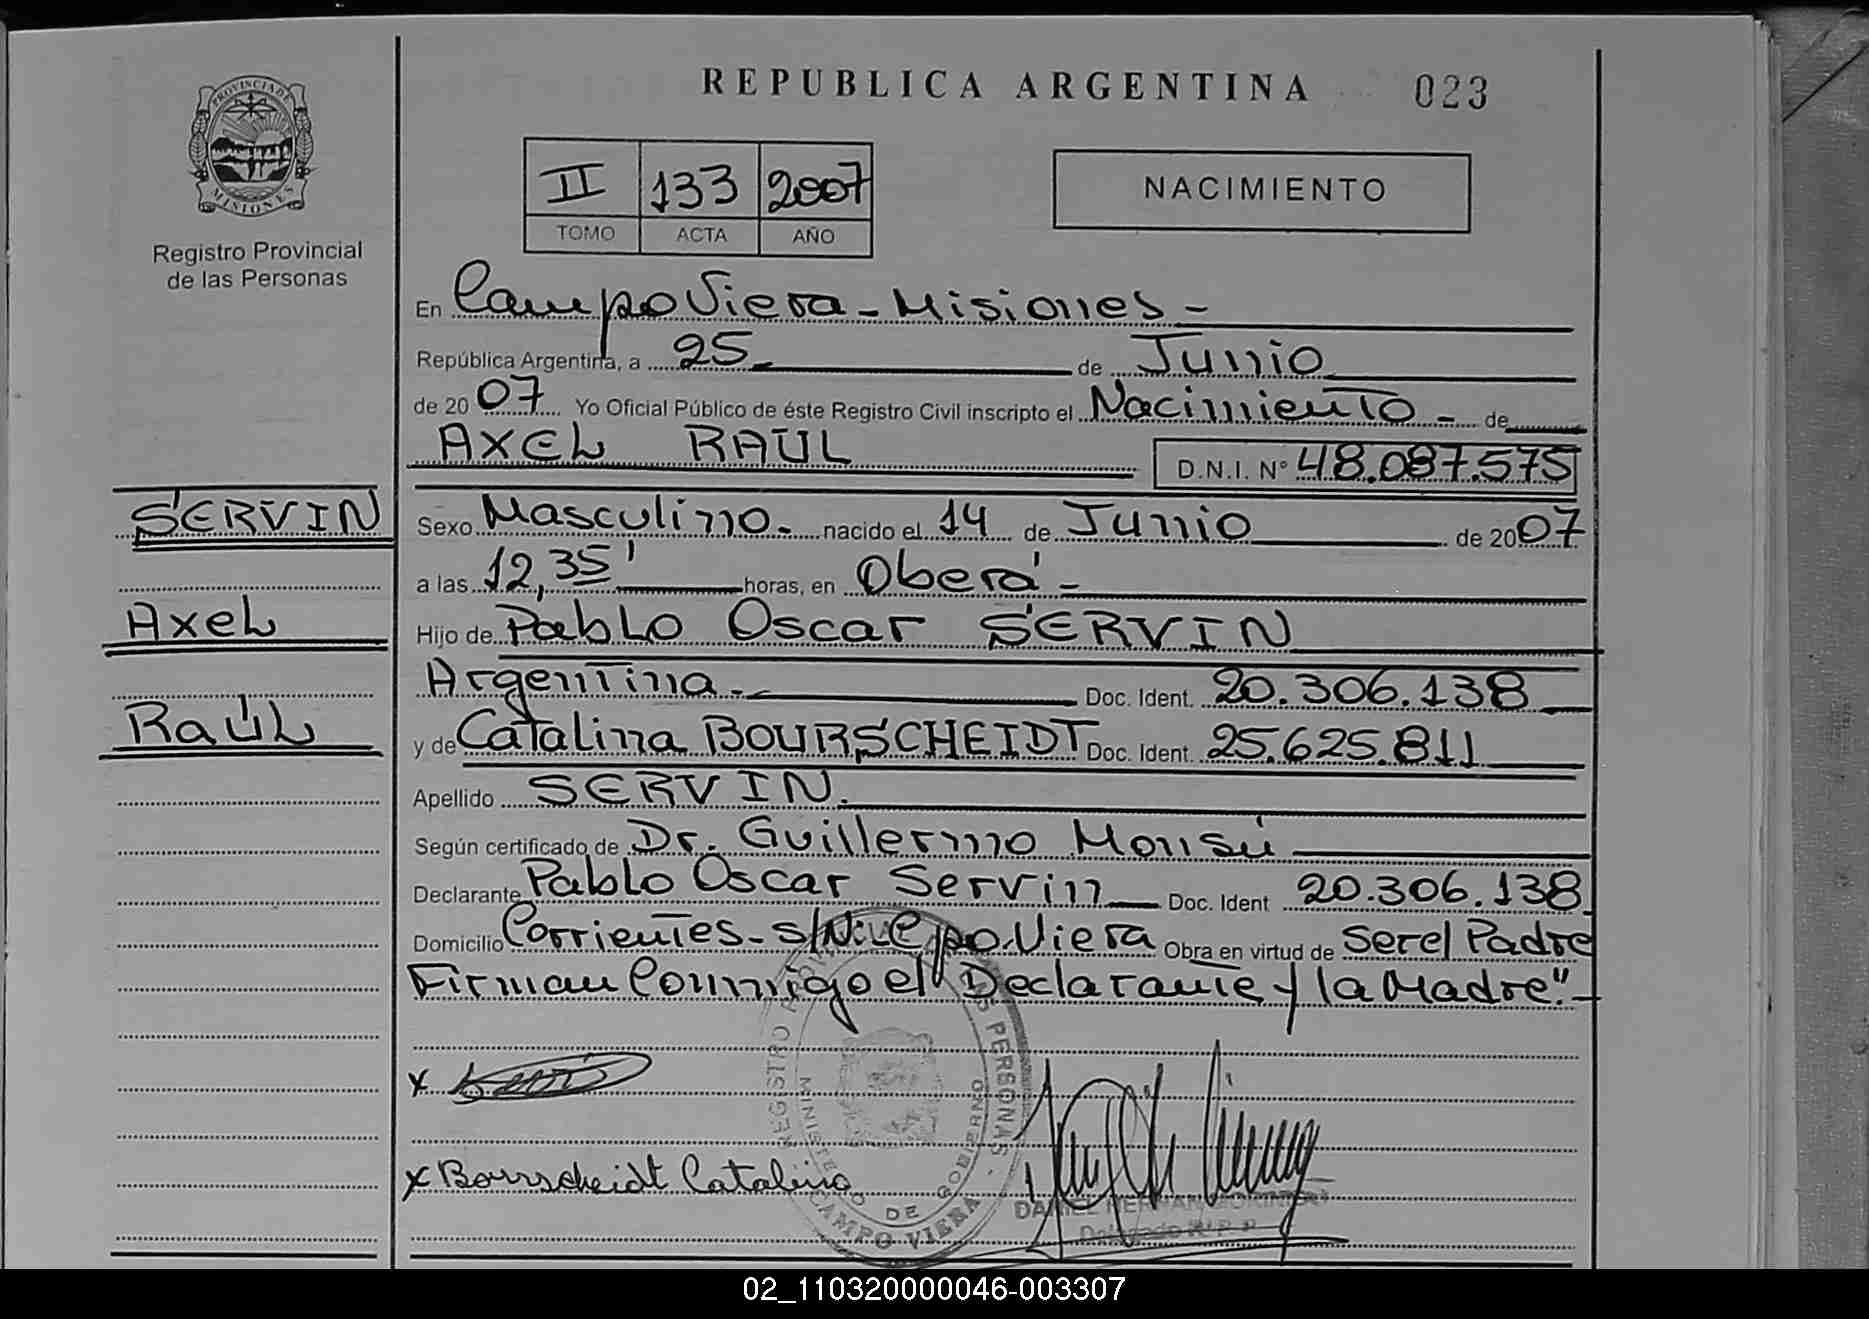 PROVINCIA DE
MISIONES
Registro Provincial
de las Personas
SERVIN
Axel
Raúl
REPUBLICA ARGENTINA 023
II 133 2007
TOMO ACTA AÑO
NACIMIENTO
En Campo Viera - Misiones -
República Argentina, a 25 de Junio
de 2007 Yo Oficial Público de éste Registro Civil inscripto el Nacimiento - de
AXEL RAÚL D.N.I. Nº 48.087.575
Sexo Masculino - nacido el 14 de Junio de 2007
a las 12,35' horas, en Oberá -
Hijo de Pablo Oscar SERVIN
Argentina - Doc. Ident. 20.306.138
y de Catalina BOURSCHEIDT Doc. Ident. 25.625.811
Apellido SERVIN.
Según certificado de Dr. Guillermo Monsú
Declarante Pablo Oscar Servin Doc. Ident 20.306.138
Domicilio Corrientes - s/Nº: Cpo. Viera Obra en virtud de Ser el Padre
Firman Conmigo el Declarante y la Madre". -
x
x Bourscheidt Catalina
REGISTRO PERSONAS
MINISTERIO DE GOBIERNO
CAMPO VIERA
DANIEL HERNAN
Delegado R.P.P.
02_110320000046-003307